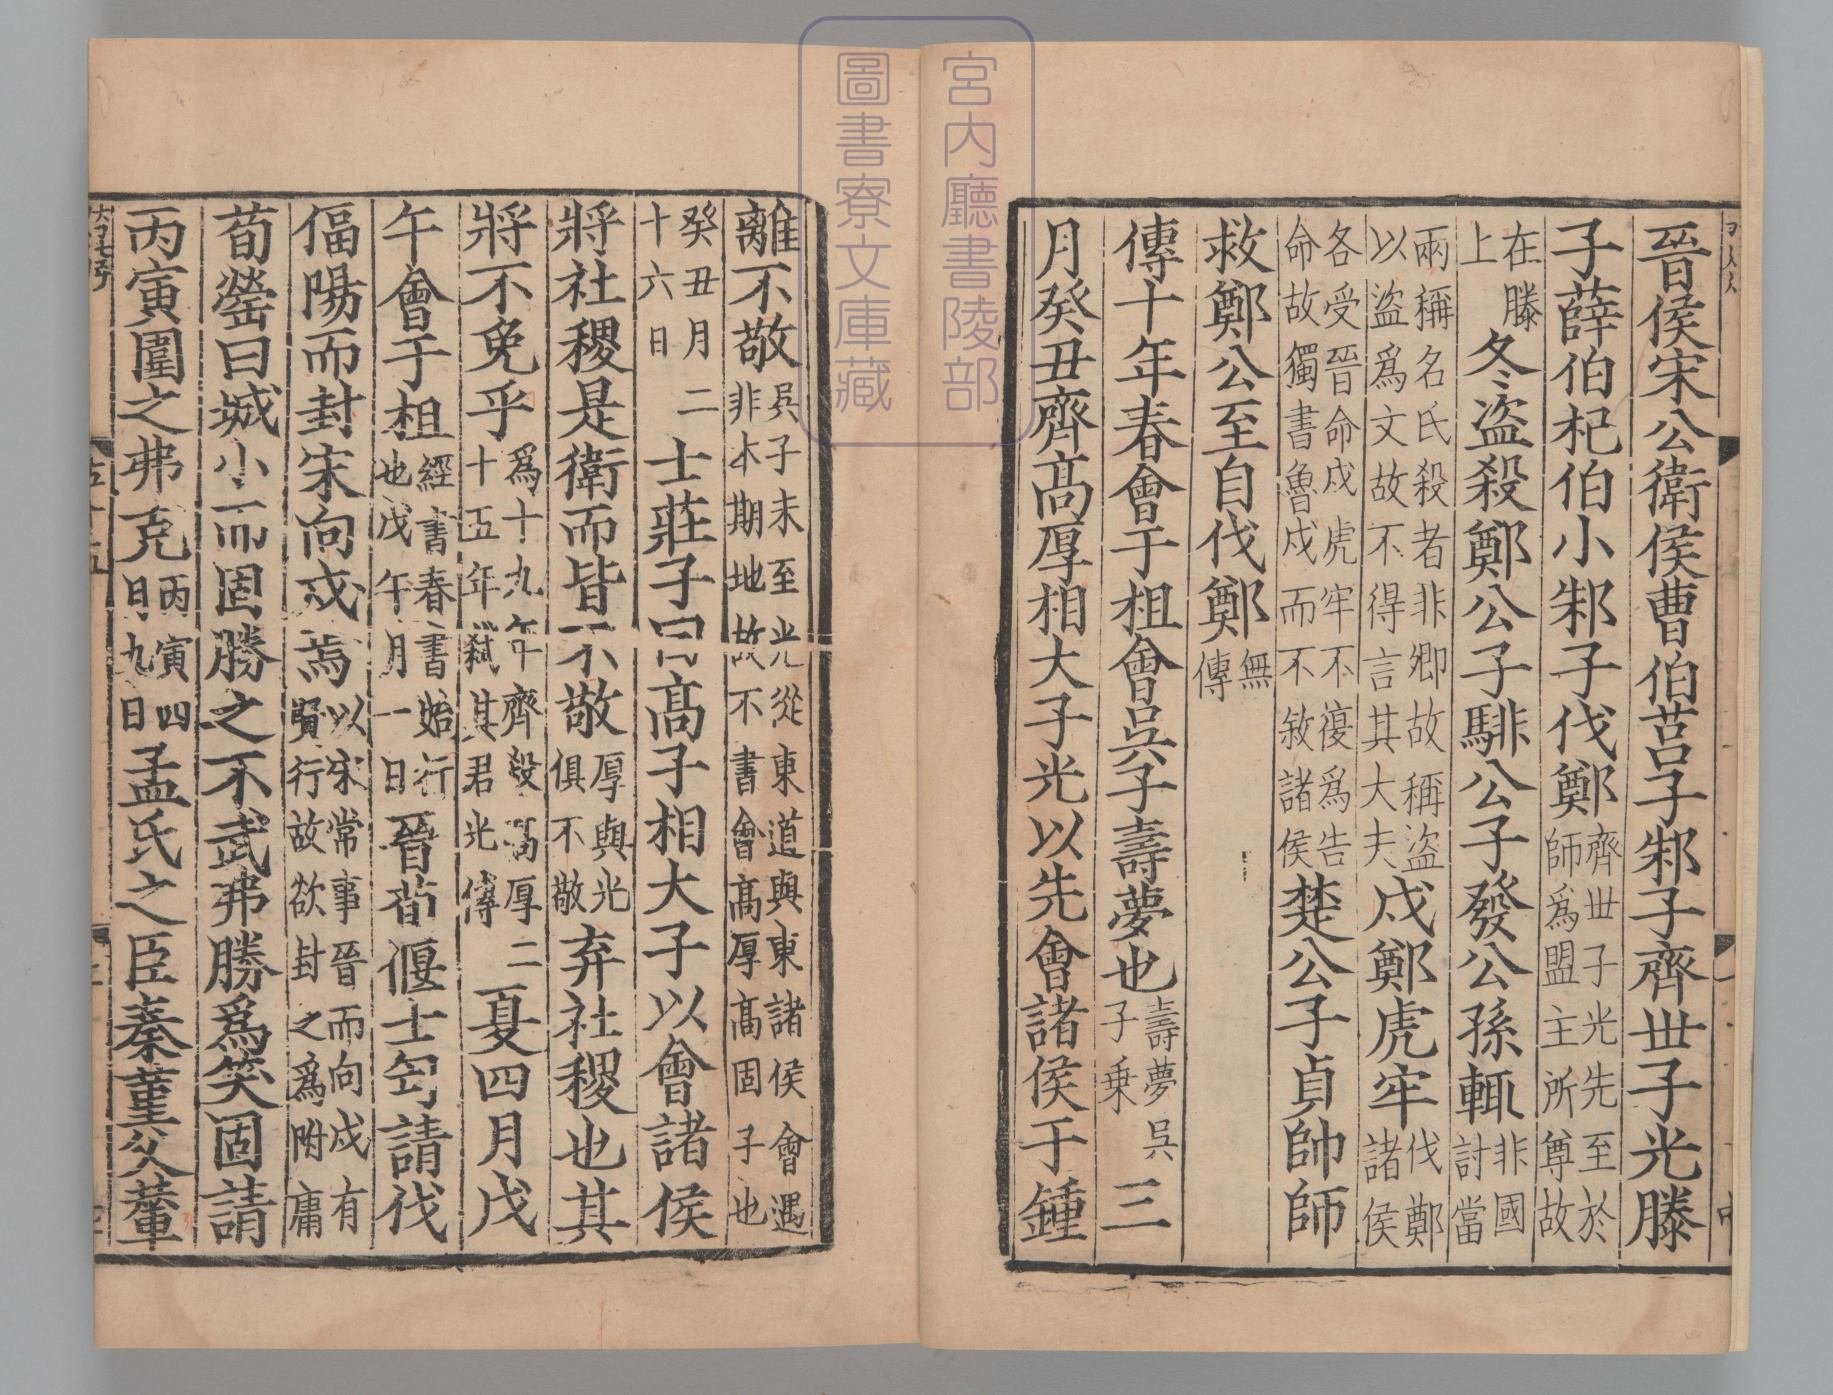 宮内廳書陵部
圖書寮文庫藏
晉侯宋公衛侯曹伯莒子邾子齊丗子光滕
子薛伯杞伯小邾子伐鄭齊丗子光先至於
師為盟主所尊故
在滕
上冬盗殺鄭公子騑公子發公孫輒非國
討當
兩稱名氏殺者非卿故稱盗
以盗爲文故不得言其大夫戍鄭虎牢伐鄭
諸侯
各受晉命戍虎牢不復爲告
命故獨書魯戍而不敘諸侯楚公子貞帥師
救鄭公至自伐鄭無
傳
傳十年春會于柤會吳子壽夢也壽夢吳
子乗三
月癸丑齊髙厚相大子光以先會諸侯于鍾
離不敬吳子未至光從東道與東諸侯會遇
非本期地故不書會髙厚髙固子也
癸丑月二
十六日士莊子曰髙子相大子以會諸侯
將社稷是衛而皆不敬厚與光
俱不敬弃社稷也其
將不免乎爲十九年齊殺髙厚二
十五年弑其君光傳夏四月戊
午會于柤經書春書始行
也戊午月一日晉荀偃士匄請伐
偪陽而封宋向戌焉以宋常事晉而向戌有
賢行故欲封之爲附庸
荀罃曰城小而固勝之不武弗勝爲笑固請
丙寅圍之弗克丙寅四
月九日孟氏之臣秦堇父輦